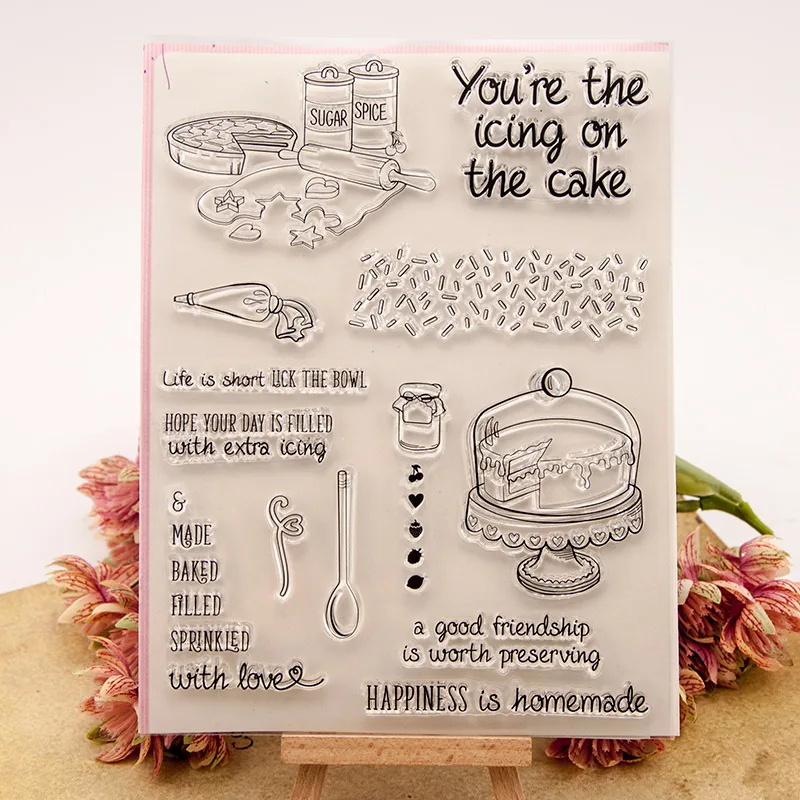 SUGAR
SPICE
You're the
icing on
the cake
Life is short LICK THE BOWL
HOPE YOUR DAY IS FILLED
with extra icing
&
MADE
BAKED
FILLED
SPRINKLED
with love
a good friendship
is worth preserving
HAPPINESS is homemade